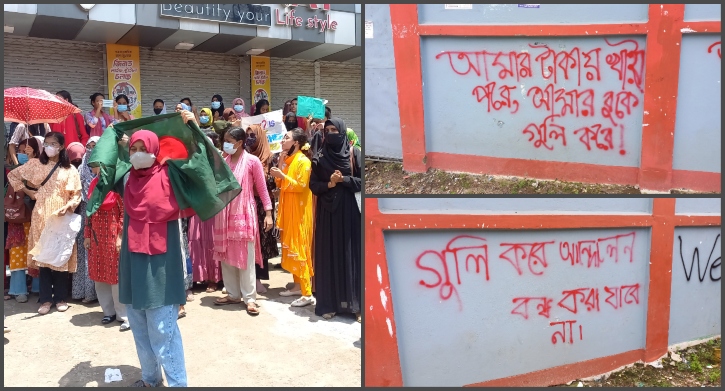 Beautify your Life style
আমার টাকায় খাইয়া
পরে আমার বুকে
গুলি করে!
গুলি করে আন্দোলন
বন্ধ করা যাবে
না।
We